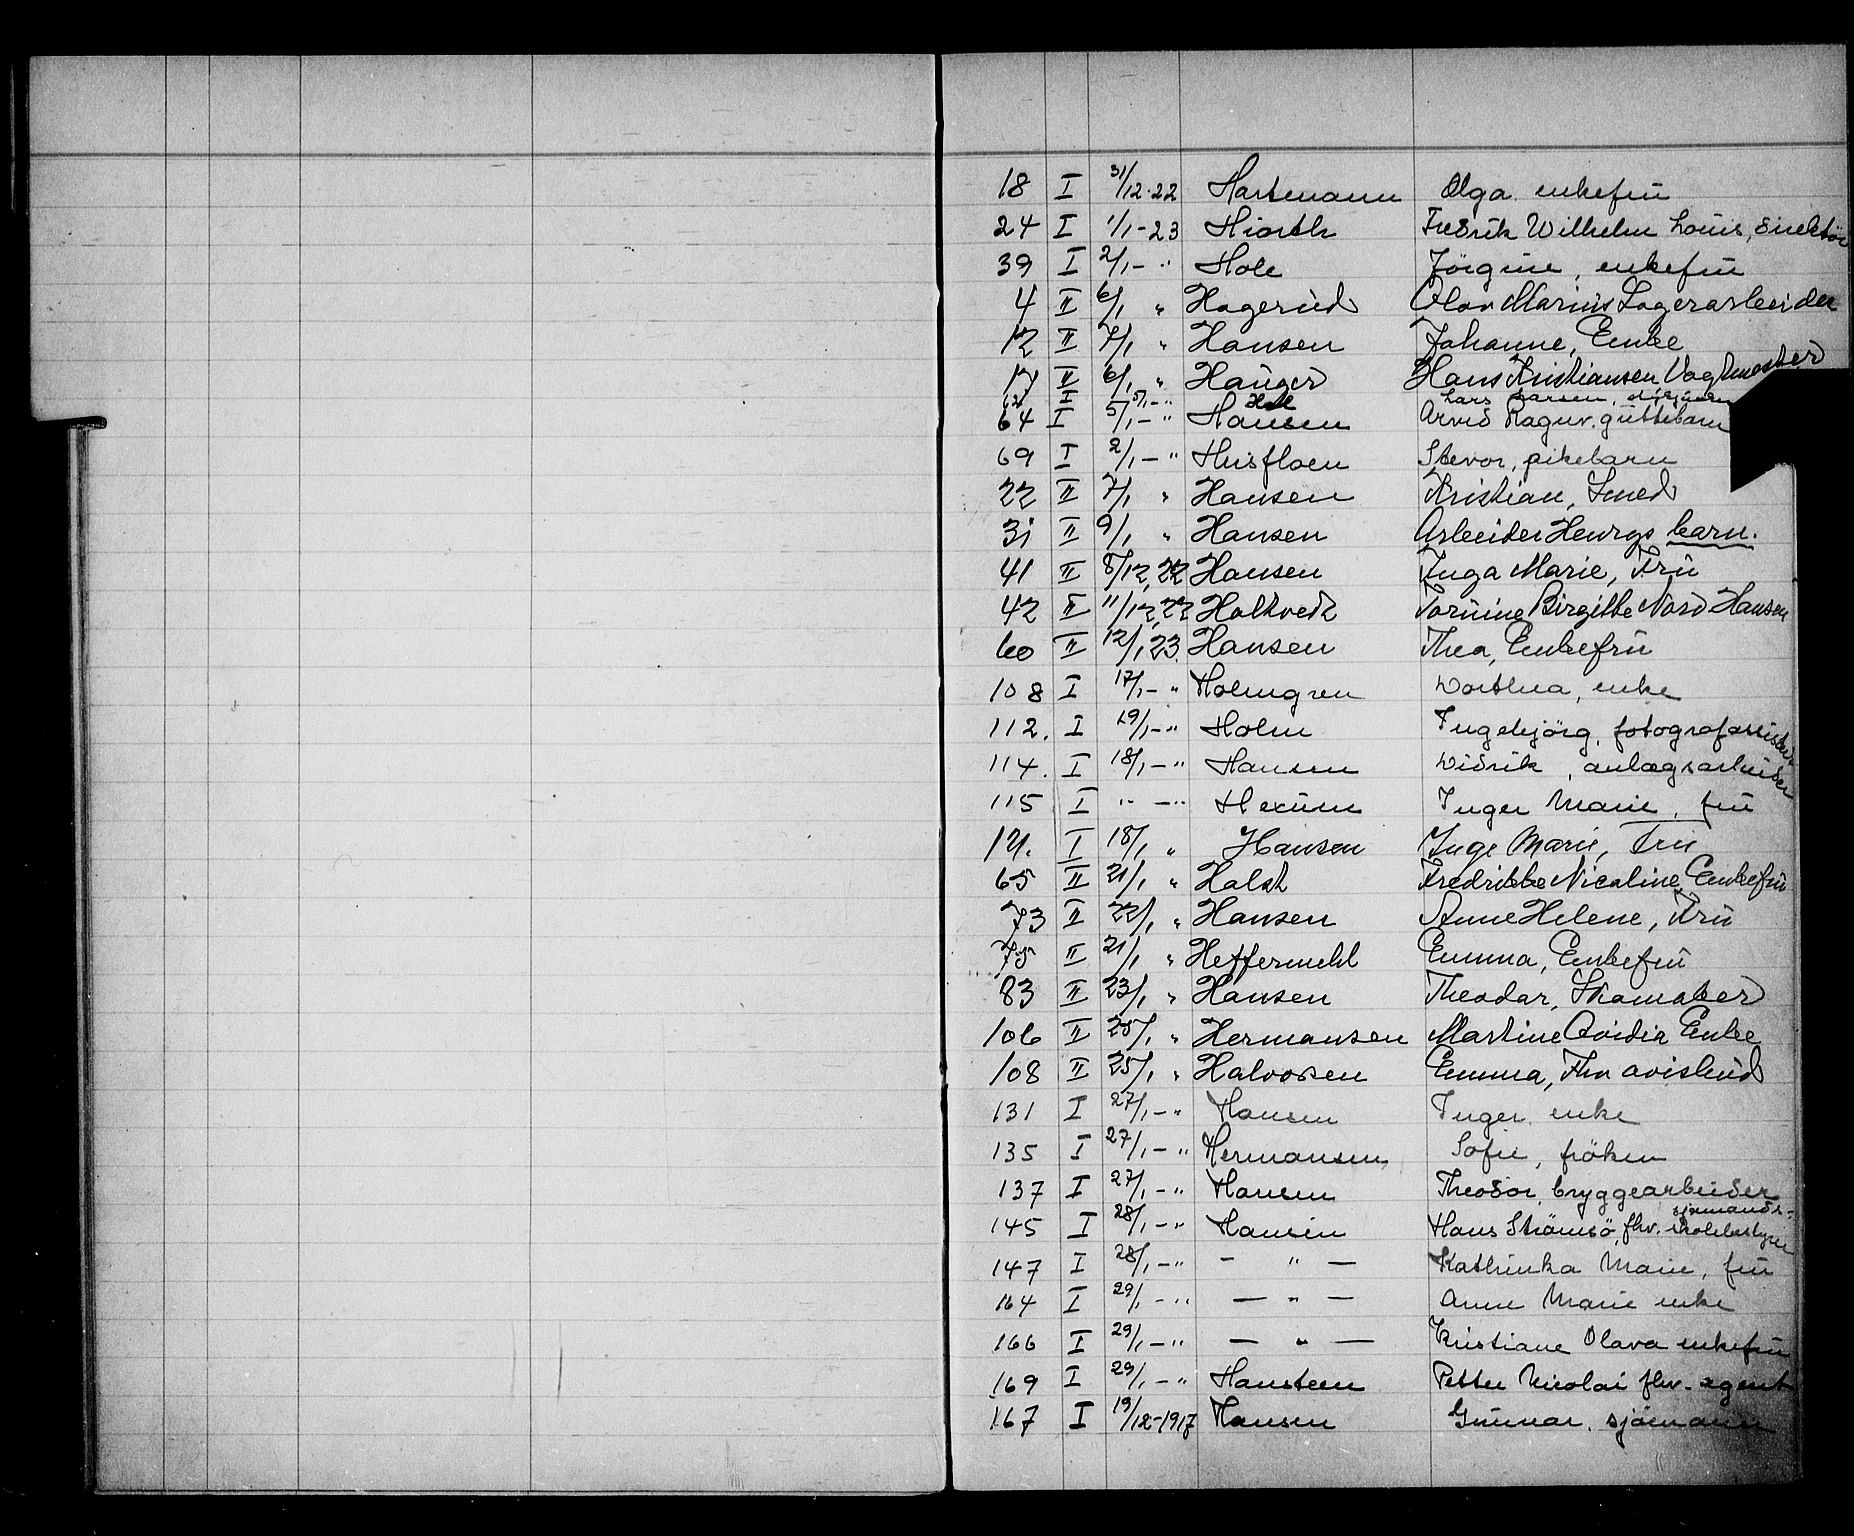 18 I 31/12-22 Hartmann Olga. enkefru
24 I 1/1-23 Hiorth Fredrik Wilhelm Louis, direktör
39 I 2/1-" Hole Jörgine, enkefru
4 II 6/1 " Hagerud Olav Marius Lagerarbeider
12 II 7/1 " Hansen Johanne, Enke
17 II 6/1 " Hauger Hans Kristiansen, Vagtmester
62 I 5/1-" Hol Lars Larsen,
64 I 5/1-" Hansen Arvid Ragnv. guttebarn
69 I 2/1-" Husfloen Stevor, pikebarn
22 II 7/1 " Hansen Kristian, Smed
31 II 9/1 " Hansen Arbeider Henrys barn.
41 II 8/12,22 Hansen Inga Marie, Fru
42 II 11/12,22 Holtvedt Tornine Birgitte Nord Hansen
60 II 12/1,23 Hansen Thea, Enkefru
108 I 17/1-" Holmgren Dorthea, enke
112. I 19/1-" Holm Ingebjörg, fotografassistent
114. I 18/1-" Hansen Didrik, anlægsarbeider
115 I " -" Hexum Inger Marie, fru
121. I 18/1 " Hansen Inge Marie, Fru
65 II 21/1 " Holst Fredrikke Nicoline, Enkefru
73 II 22/1 " Hansen Anne Helene, Fru
75 II 21/1 " Heffermehl Emma, Enkefru
83 II 23/1 " Hansen Theodor, Skomaker
106 II 25/1 " Hermansen Martine Ovidia Enke
108 II 25/1 " Halvorsen Emma, Fhv avisbud
131 I 27/1-" Hansen Inger. enke
135 I 27/1-" Hermansen, Sofie, fröken
137 I 27/1-" Hansen Theodor, bryggearbeider
145 I 28/1-" Hansen Hans Strömsö, fhv. sjömands-skolebestyrer
147 I 28/1-" - " - Kathinka Marie, fru
164 I 29/1-" - " - Anne Marie enke
166 I 29/1-" - " - Kristiane Olava enkefru
169 I 29/1-" Hansteen Petter Nicolai fhv. agent
167 I 19/12-1917 Hansen Gunnar. sjömann